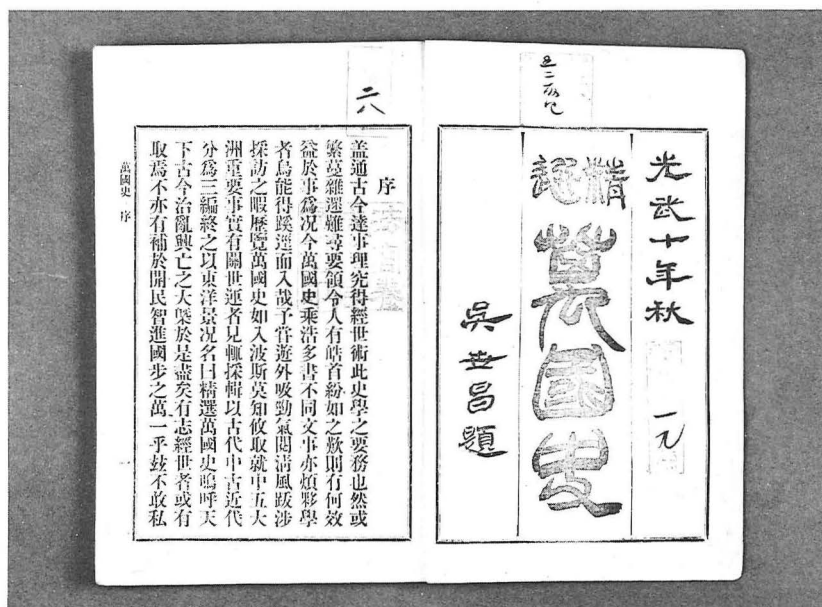 光武十年秋
精選
萬國史
吳世昌題
二八
序
盖通古今達事理究得經世術此史學之要務也然或
繁蔓雜遝難尋要領令人有皓首紛如之歎則有何效
益於事爲况今萬國史乘浩多書不同文事亦煩夥學
者烏能得蹊逕而入哉予甞遊外吸勁氣閱淸風跋涉
採訪之暇歷覽萬國史如入波斯莫知攸取就中五大
洲重要事實有關世運者見輒採輯以古代中古近代
分爲三編終之以東洋景况名曰精選萬國史嗚呼天
下古今治亂興亡之大槩於是盡矣有志經世者或有
取焉不亦有補於開民智進國步之萬一乎玆不敢私
萬國史 序 一